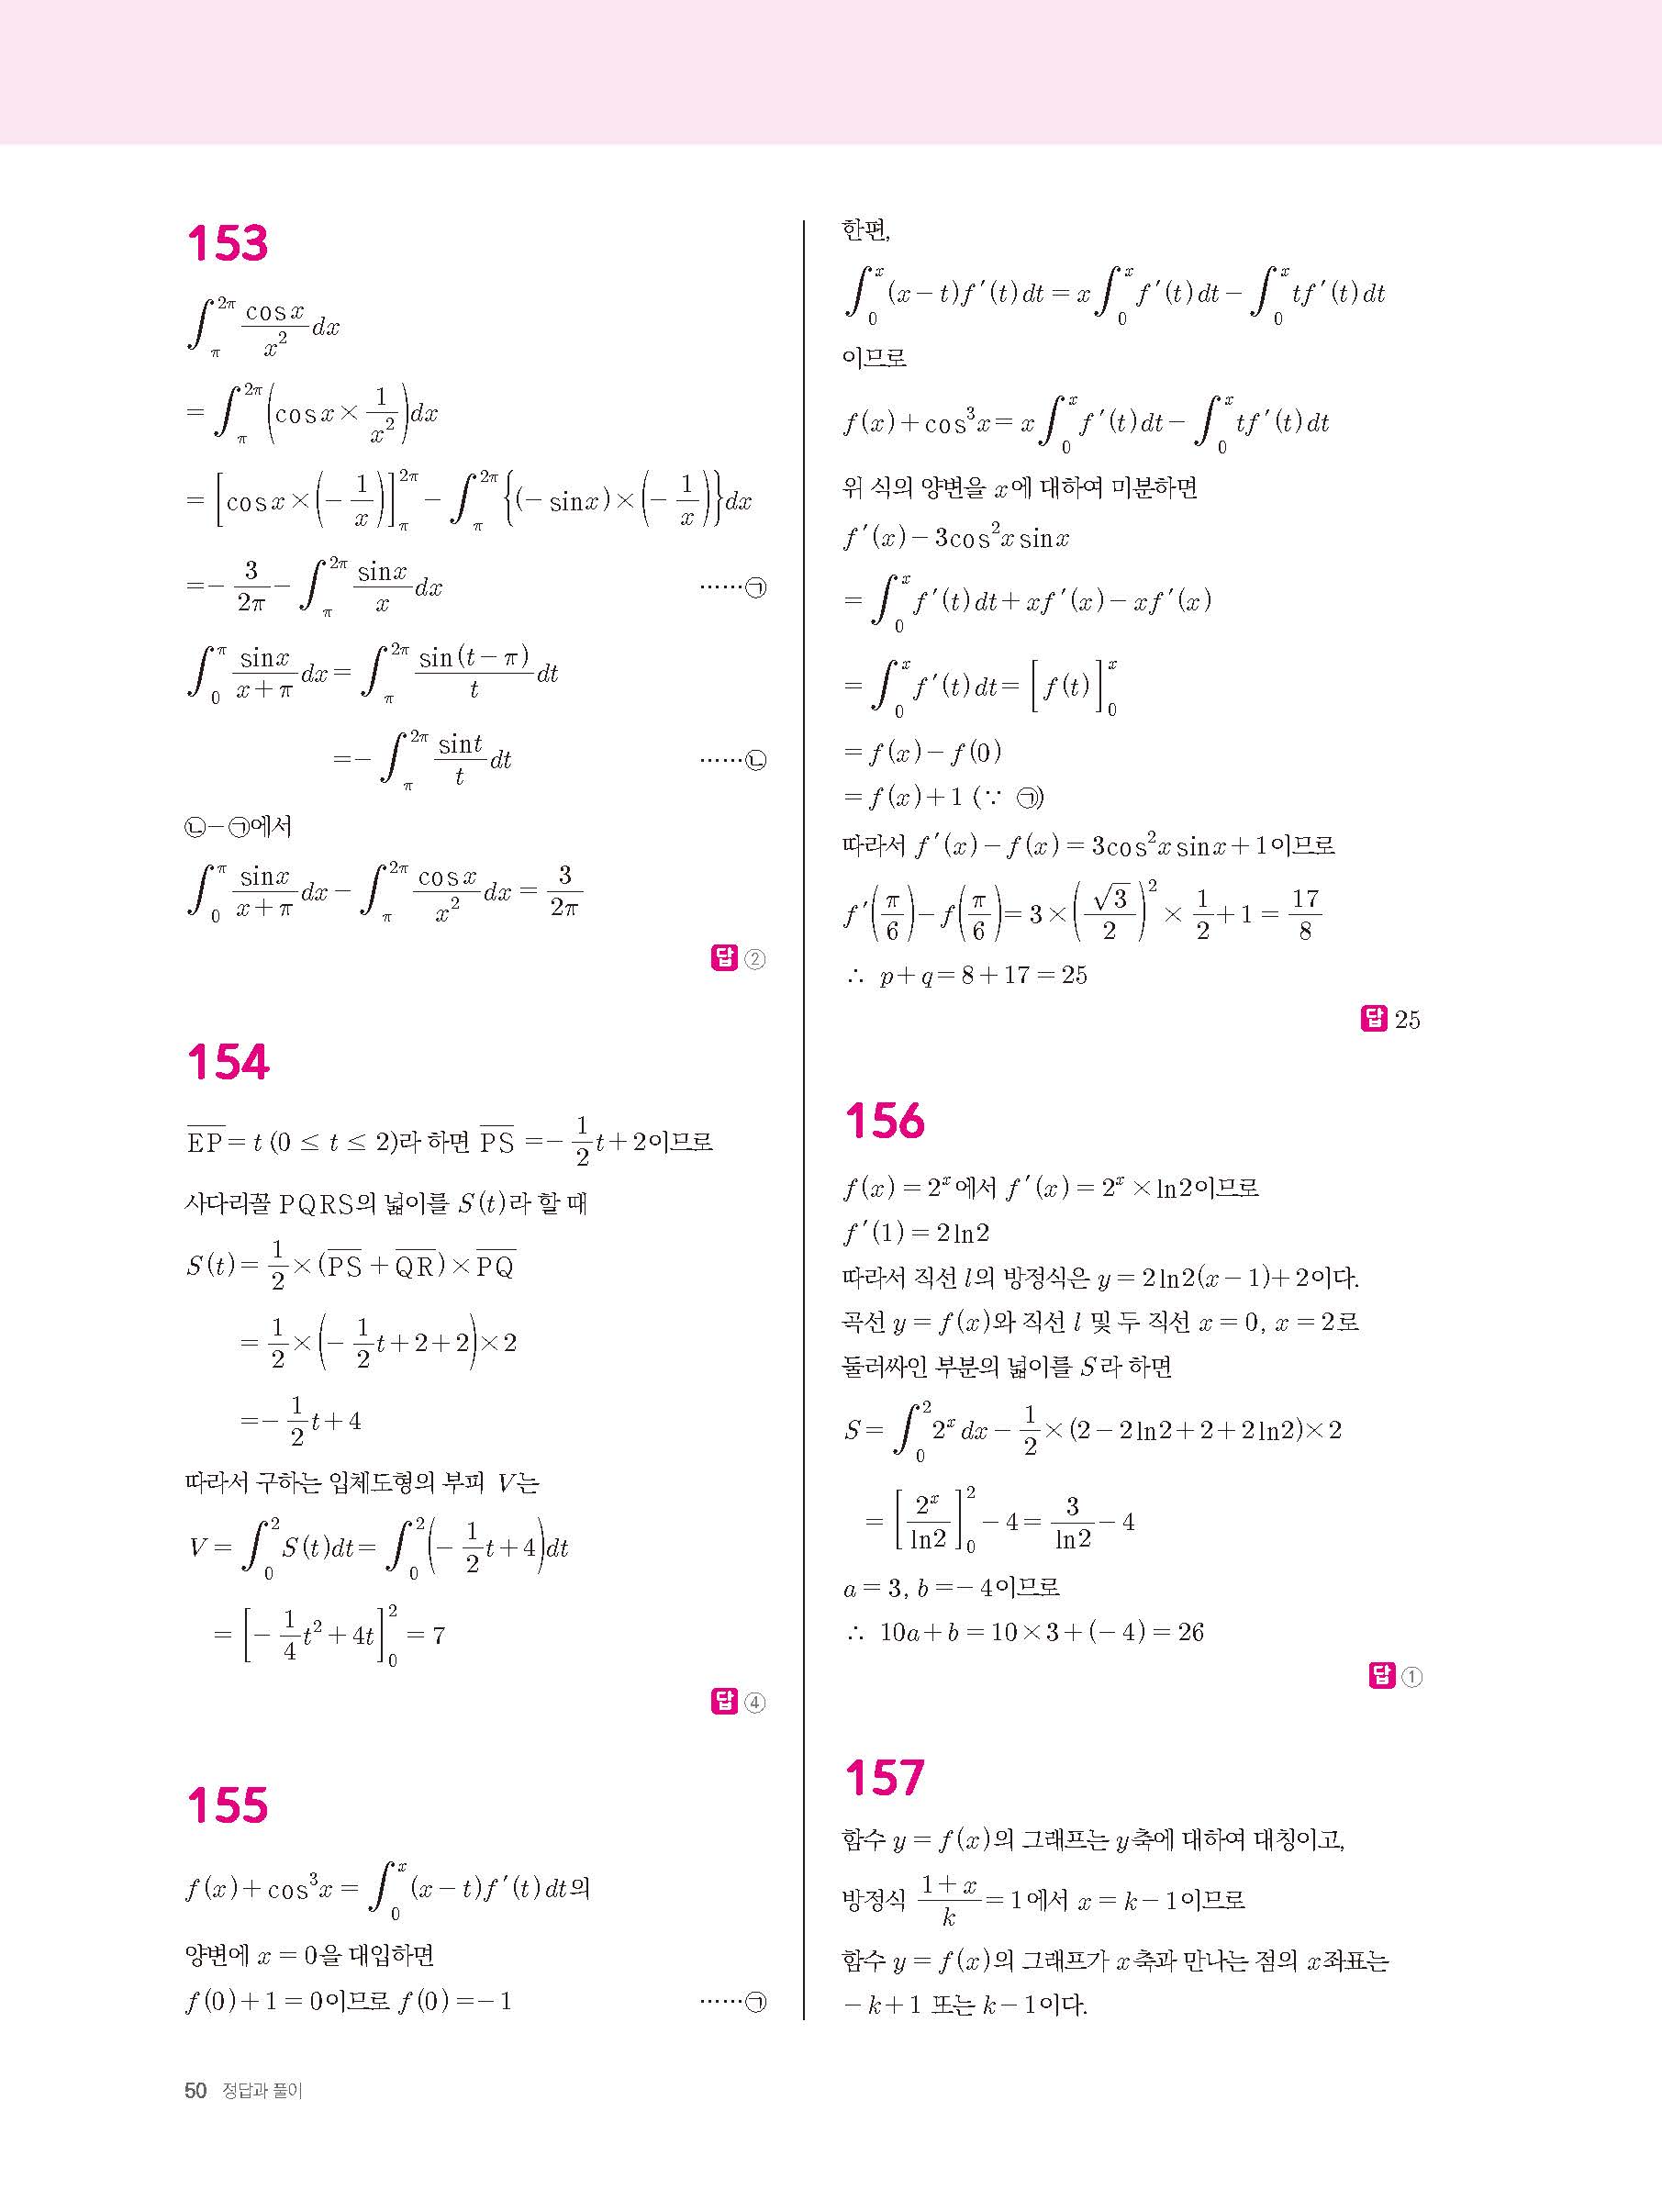 153
∫_π^{2π} cosx/x² dx
= ∫_π^{2π} (cosx × 1/x²)dx
= [cosx × (− 1/x)]_π^{2π} − ∫_π^{2π} {(− sinx) × (− 1/x)}dx
=− 3/2π − ∫_π^{2π} sinx/x dx ……㉠
∫_0^π sinx/(x+π) dx = ∫_π^{2π} sin(t−π)/t dt
=− ∫_π^{2π} sint/t dt ……㉡
㉡−㉠에서
∫_0^π sinx/(x+π) dx − ∫_π^{2π} cosx/x² dx = 3/2π
답 ②
154
E͞P͞ = t (0 ≤ t ≤ 2)라 하면 P͞S͞ =− 1/2 t+2이므로
사다리꼴 PQRS의 넓이를 S(t)라 할 때
S(t)= 1/2 × (P͞S͞ + Q͞R͞) × P͞Q͞
= 1/2 × (− 1/2 t+2+2) × 2
=− 1/2 t+4
따라서 구하는 입체도형의 부피 V는
V = ∫_0^2 S(t)dt = ∫_0^2 (− 1/2 t+4)dt
= [− 1/4 t² + 4t]_0^2 = 7
답 ④
155
f(x)+cos³x = ∫_0^x (x−t)f′(t)dt의
양변에 x = 0을 대입하면
f(0)+1 = 0이므로 f(0) =−1 ……㉠
한편,
∫_0^x (x−t)f′(t)dt = x∫_0^x f′(t)dt − ∫_0^x tf′(t)dt
이므로
f(x)+cos³x = x∫_0^x f′(t)dt − ∫_0^x tf′(t)dt
위 식의 양변을 x에 대하여 미분하면
f′(x)−3cos²x sinx
= ∫_0^x f′(t)dt + xf′(x) − xf′(x)
= ∫_0^x f′(t)dt = [f(t)]_0^x
= f(x)−f(0)
= f(x)+1 (∵ ㉠)
따라서 f′(x)−f(x) = 3cos²x sinx+1이므로
f′(π/6)−f(π/6) = 3×(√3/2)² × 1/2 +1 = 17/8
∴ p+q = 8+17 = 25
답 25
156
f(x) = 2^x에서 f′(x) = 2^x × ln2이므로
f′(1) = 2ln2
따라서 직선 l의 방정식은 y = 2ln2(x−1)+2이다.
곡선 y = f(x)와 직선 l 및 두 직선 x = 0, x = 2로
둘러싸인 부분의 넓이를 S라 하면
S = ∫_0^2 2^x dx − 1/2 × (2−2ln2+2+2ln2)×2
= [2^x/ln2]_0^2 −4 = 3/ln2 −4
a = 3, b =−4이므로
∴ 10a+b = 10×3+(−4) = 26
답 ①
157
함수 y = f(x)의 그래프는 y축에 대하여 대칭이고,
방정식 (1+x)/k = 1에서 x = k−1이므로
함수 y = f(x)의 그래프가 x축과 만나는 점의 x좌표는
−k+1 또는 k−1이다.
50 정답과 풀이